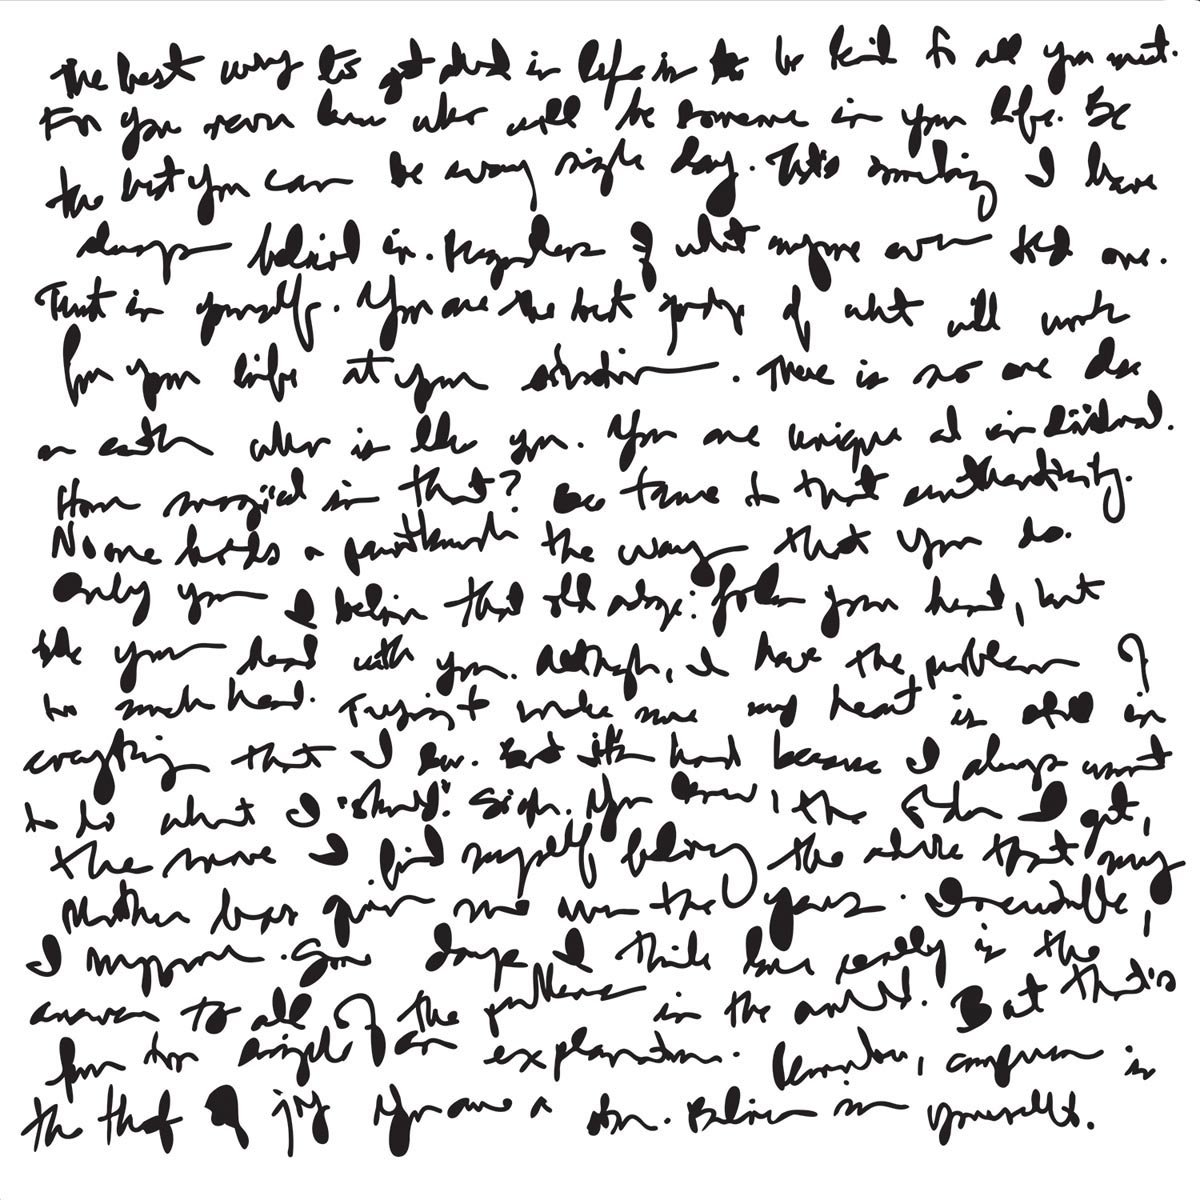 The best way to get ahead in life is to be kind to all you meet.
For you never know who will be someone in your life. Be
the best you can be every single day. That's something I have
always believed in. Regardless of what anyone ever told me.
Trust in yourself. You are the best judge of what will work
for your life at your situation. There is no one else
on earth who is like you. You are unique and individual.
How magical is that? Be true to that authenticity.
No one holds a paintbrush the way that you do.
Only you I believe that old adage: follow your heart, but
take your head with you. Although, I have the problem of
too much head. Trying to make sure my heart is still in
everything that I do. But it's hard because I always want
to do what I "should". Sigh. You know, the I get,
the more I find myself following the advice that my
Mother has given me over the years. Inevitable,
I suppose. Some days I think love really is the
answer to all of the problems in the world. But that's
far too simple an explanation. Remember, comparison is
the thief of joy You are a star. Believe in yourself.